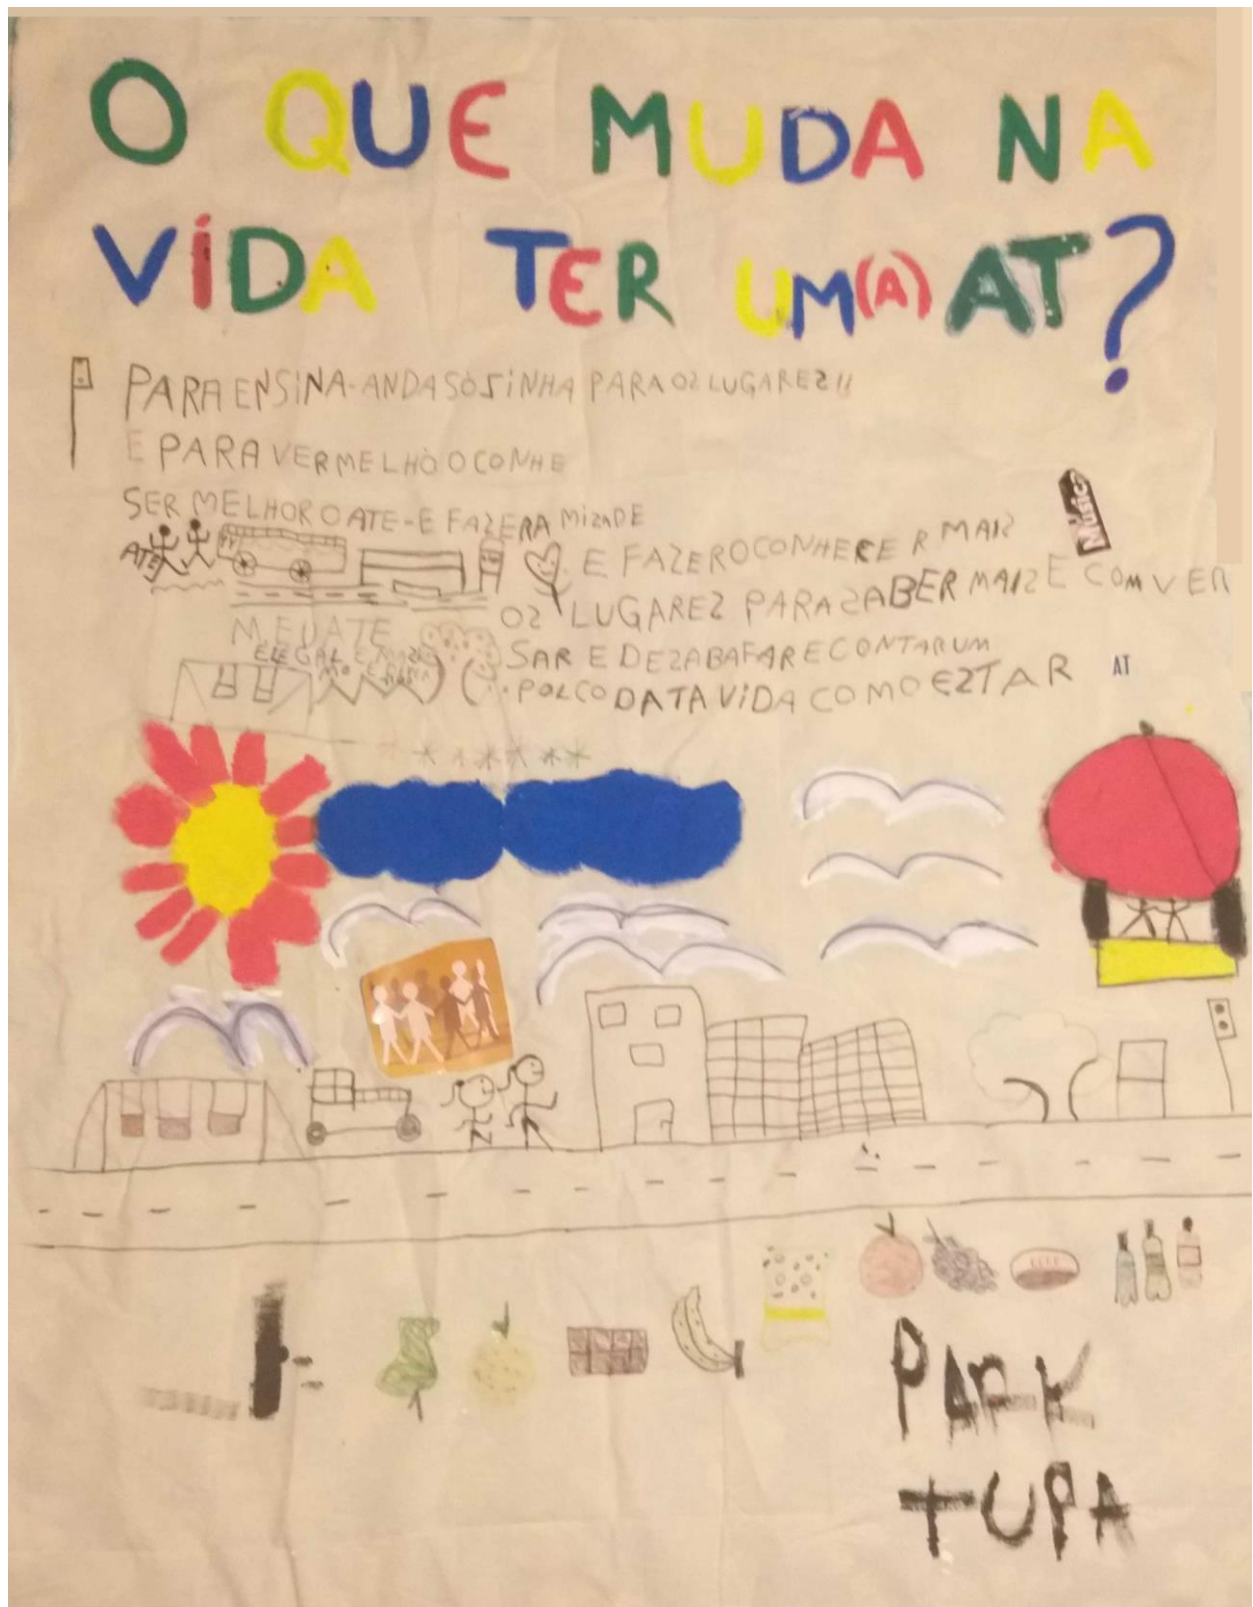 O QUE MUDA NA
VIDA TER UM(A) AT?
PARA ENSINA-ANDA SÒSINHA PARA OZ LUGAREZ!!
E PARA VERMELHÒ O CONHE
SER MELHOR O ATE-E FAZER A MIZADE
Music
ATE
E FAZER O CONHECER MAIZ
OZ LUGAREZ PARA ZABER MAIZ E COMVER
SAR E DEZABAFAR E CONTAR UM
POLCO DA TA VIDA COMO EZTAR
AT
MEU ATE
ELEGAL E MAZ
PARK
TUPA